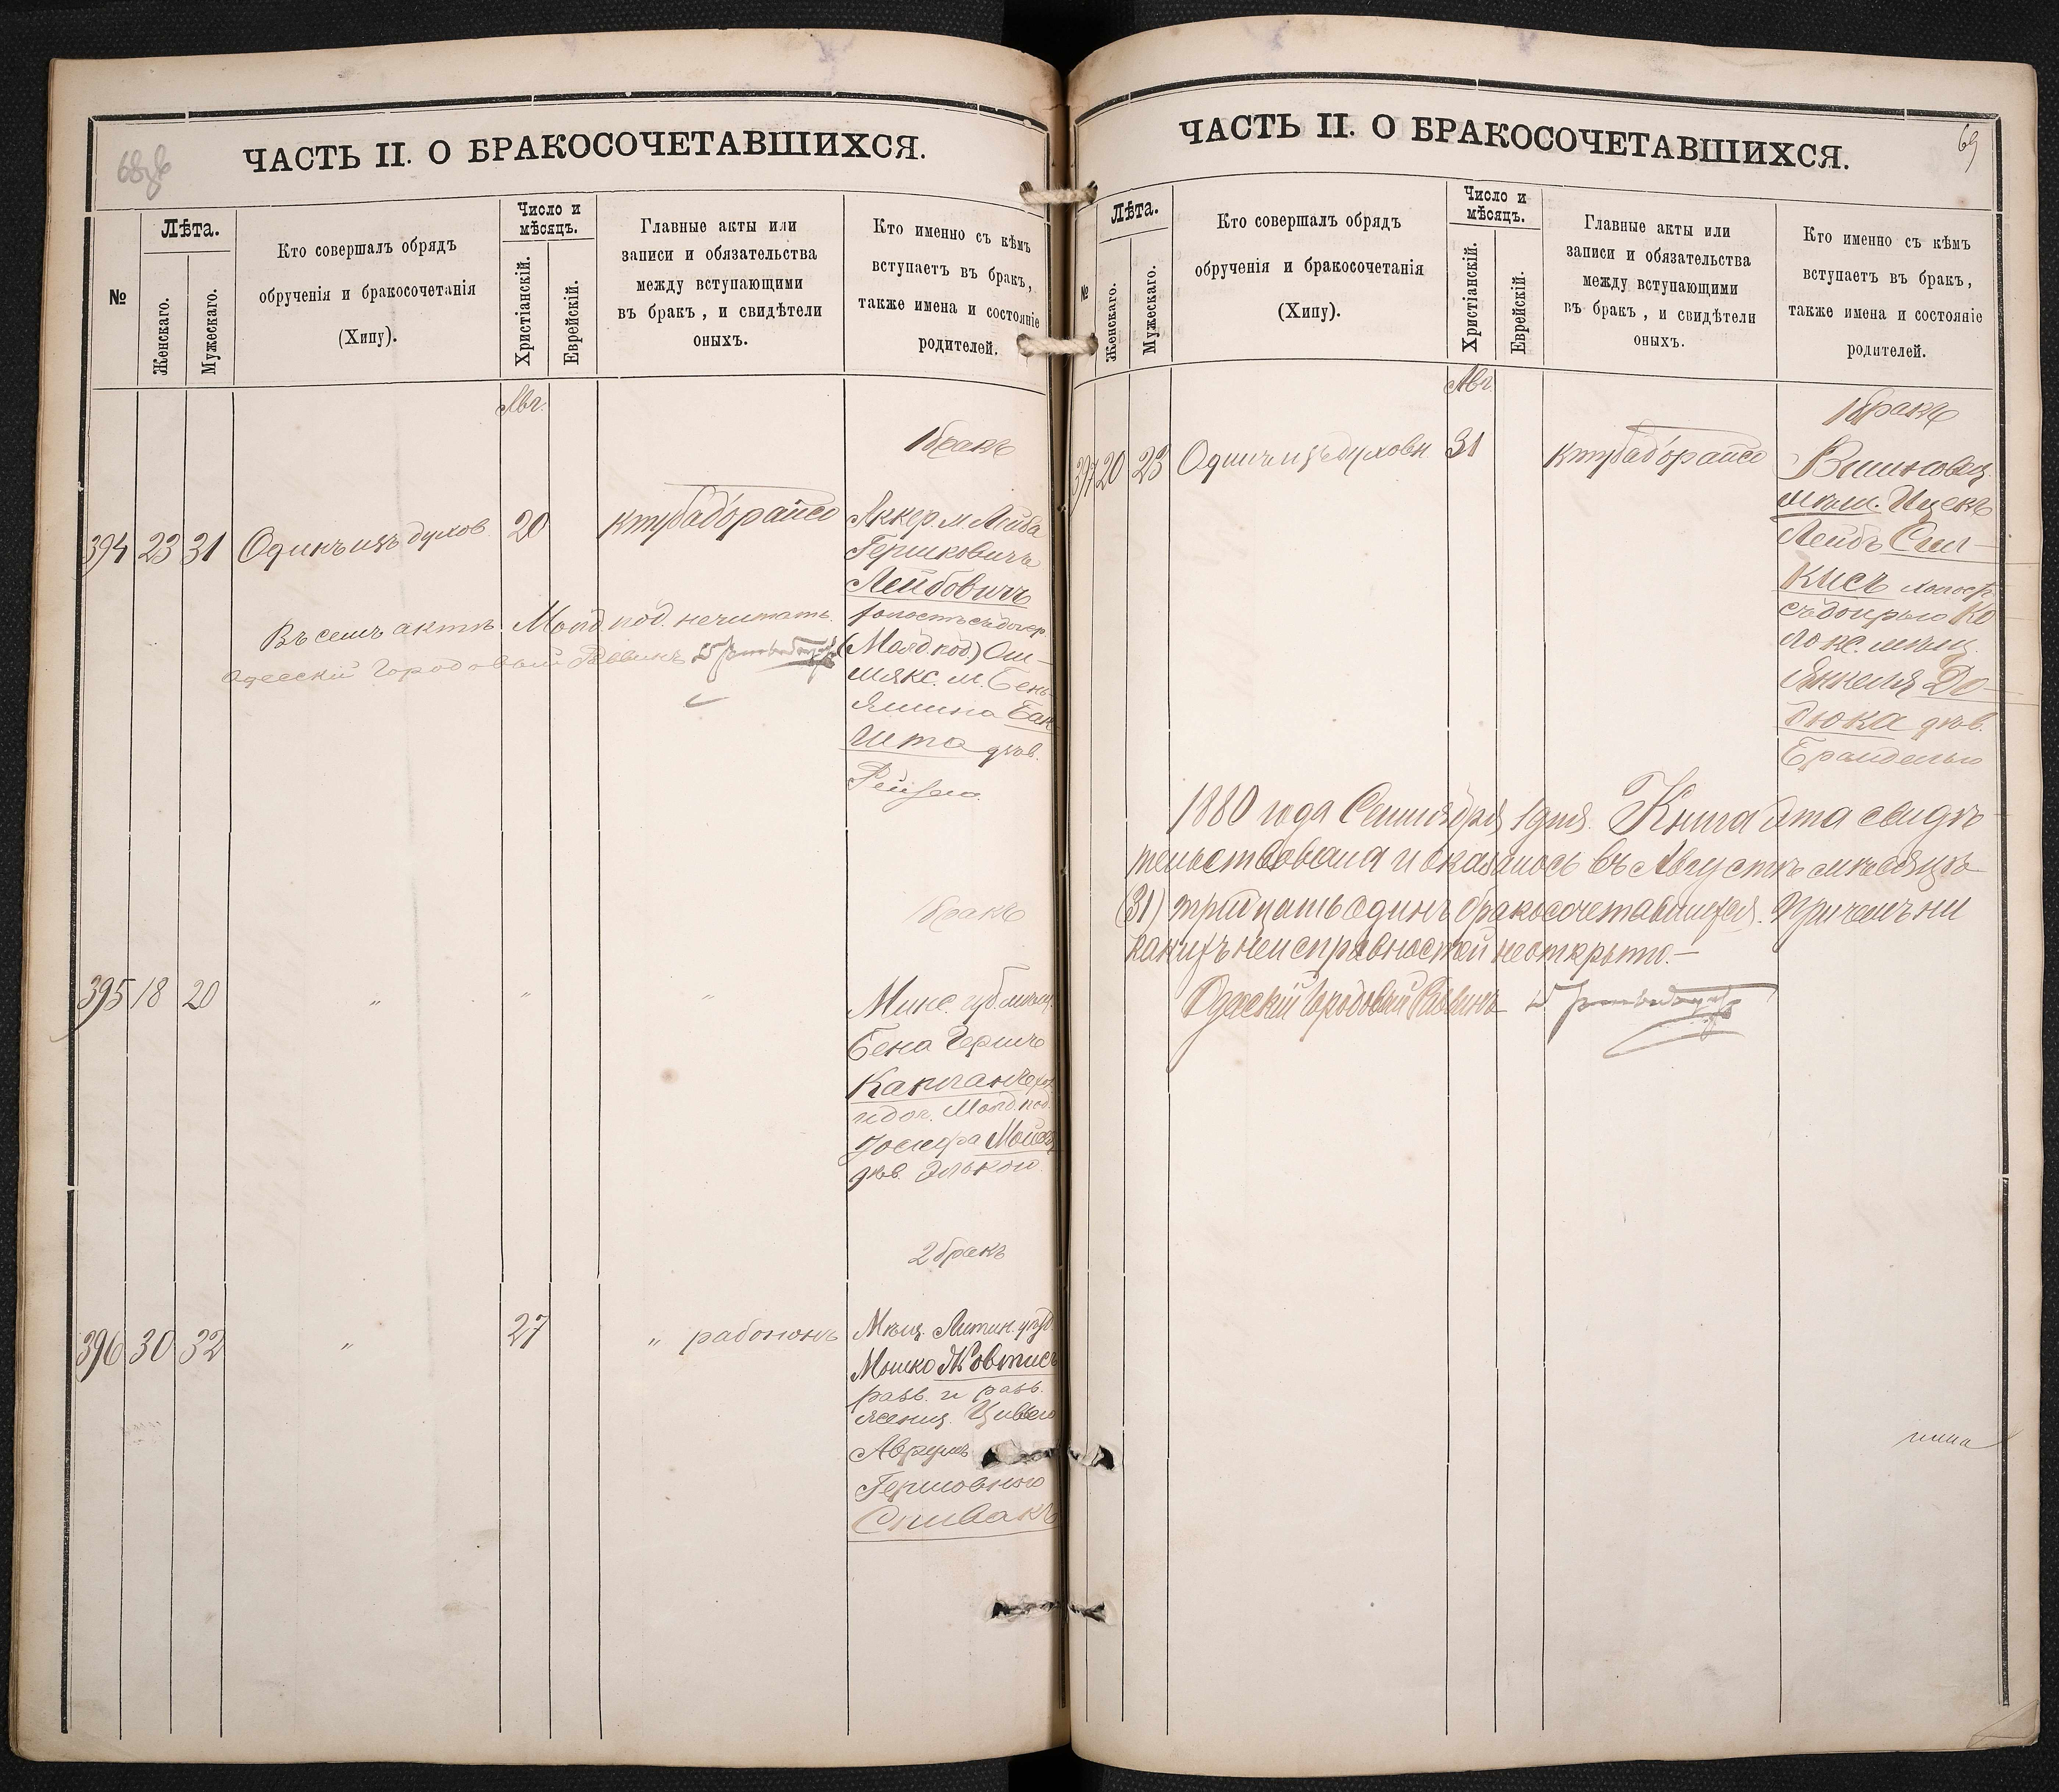 68 об
ЧАСТЬ II. О БРАКОСОЧЕТАВШИХСЯ.
№
Лѣта.
Женскаго.
Мужескаго.
Кто совершалъ обрядъ
обрученія и бракосочетанія
(Хипу).
Число и
мѣсяцъ.
Христіанскій.
Еврейскій.
Главные акты или
записи и обязательства
между вступающими
въ бракъ, и свидѣтели
оныхъ.
Кто именно съ кѣмъ
вступаетъ въ бракъ,
также имена и состояніе
родителей.
Авг.
1 бракъ
394 23 31 Одинъ изъ духов. 20 ктубадорайсо Аккер. м. Лейба
Гершковичъ
Лейбовичъ
холостъ съ дочер.
(Молд. под.) Ош-
мякс. м. Бень-
ямина Бак-
шта дѣв.
Рейзею
Въ семъ актѣ Молд. под. нечитать.
Одесскій Городовый Раввинъ
1 бракъ
395 18 20 " " " Минс. губ. мѣщ.
Бена Герше
Капланъ хол.
и доч. Молд. под.
Іосифа
дѣв. Элькою.
2 бракъ
396 30 32 " 27 " рабононъ Мѣщ. Литин. уѣзд.
Мошко Жовтисъ
разв. и разв.
женщ. Цивею
Аврумъ
Гершовною
Спивакъ
69
ЧАСТЬ II. О БРАКОСОЧЕТАВШИХСЯ.
№
Лѣта.
Женскаго.
Мужескаго.
Кто совершалъ обрядъ
обрученія и бракосочетанія
(Хипу).
Число и
мѣсяцъ.
Христіанскій.
Еврейскій.
Главные акты или
записи и обязательства
между вступающими
въ бракъ, и свидѣтели
оныхъ.
Кто именно съ кѣмъ
вступаетъ въ бракъ,
также имена и состояніе
родителей.
Авг.
1 бракъ
397 20 23 Одинъ изъ духовн. 31 ктубадорайсо Вишновец.
мѣщ. Ицекъ
Лейбъ Сил-
кисъ холост.
съ дочерью Ко
локс. мѣщ.
Янкеля До-
дюка дѣв.
Брайделью
1880 года Сентября 1 дня. Книга эта свидѣ-
тельствована и оказалось въ Августѣ мѣсяцѣ
(31) тридцать одинъ бракосочетавшихся. Причемъ ни
какихъ неисправностей неоткрыто.—
Одесскій Городовый Раввинъ